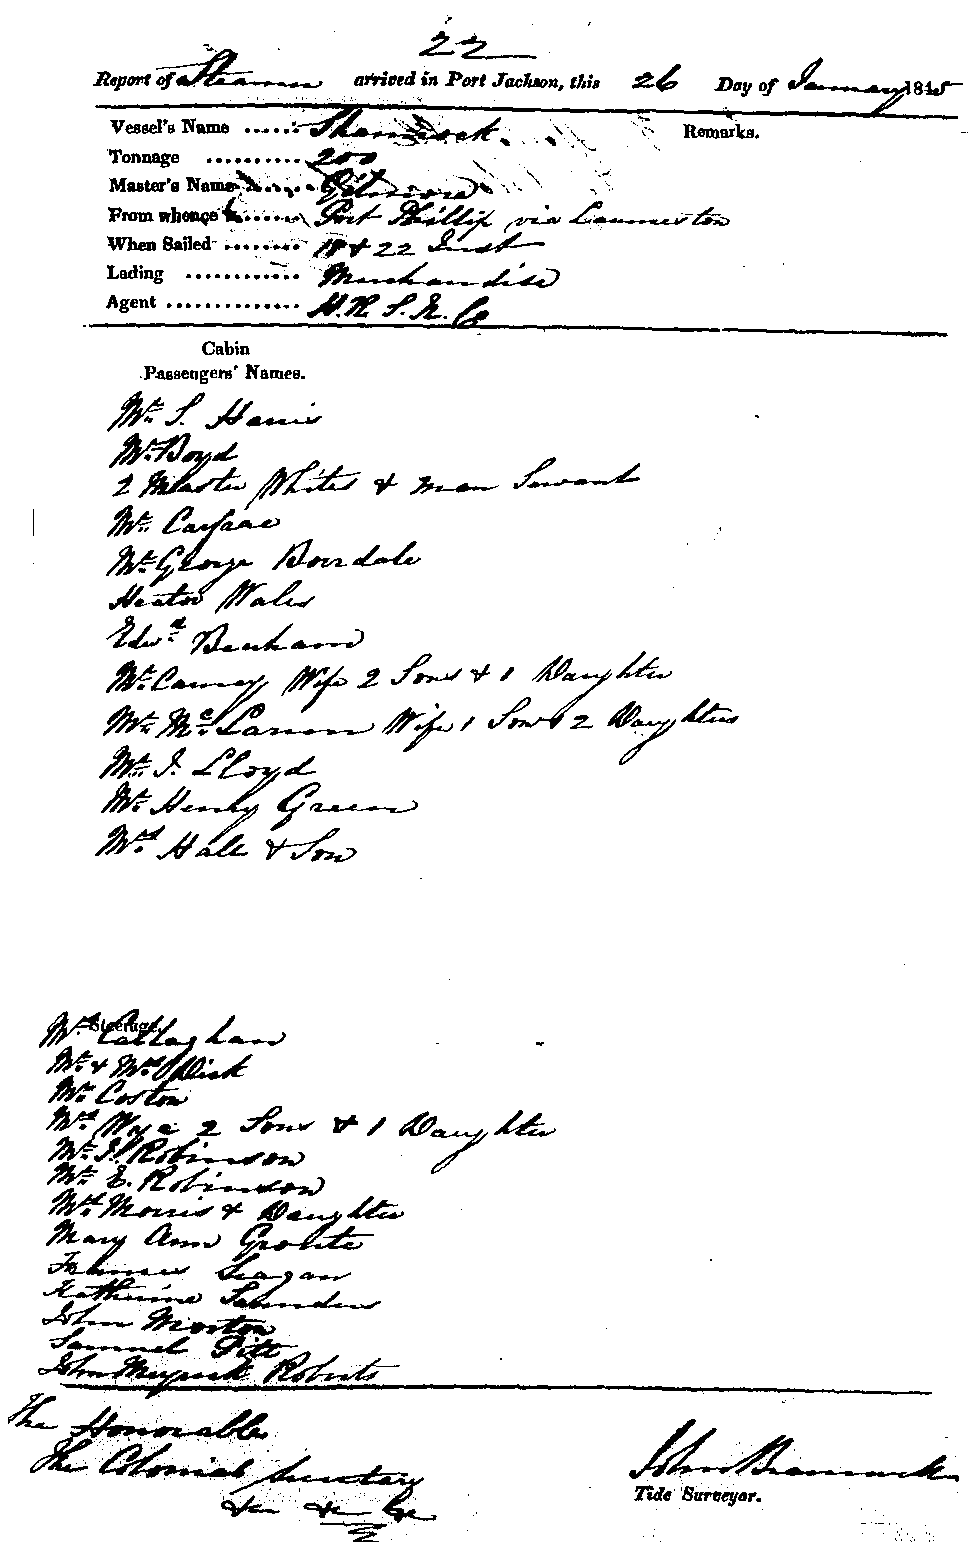 22
Report of Steamer arrived in Port Jackson, this 26 Day of January 1845
Vessel's Name ...... Shamrock
Remarks.
Tonnage .......... 200
Master's Name Gilmore
From whence Port Phillip via Launceston
When Sailed ........ 18 & 22 Inst
Lading ............ Merchandise
Agent ............. H. R. S. N. Co
Cabin
Passengers' Names.
Mr. S. Harris
Mr. Boyd
2 Master Whites & man Servant
Mr. Carfrae
Mr. George Bourdale
Hector Wales
Edwd. Benham
Mr. Carney Wife 2 Sons & 1 Daughter
Mr. Mc. Laren Wife 1 Son & 2 Daughters
Mr. J. Lloyd
Mr. Henry Green
Mrs. Hale & Son
Steerage.
Mrs. Callaghan
Mr. & Mrs. Dick
Mr. Coston
Mrs. Wye 2 Sons & 1 Daughter
Mr. J. Robinson
Mr. E. Robinson
Mrs. Morris & Daughter
Mary Ann Groute
Frances Leagan
Katherine Saunders
John Morton
Samuel Pitt
John Meyrick Roberts
The Honorable
The Colonial Secretary
&c &c &c
John Brannock
Tide Surveyor.